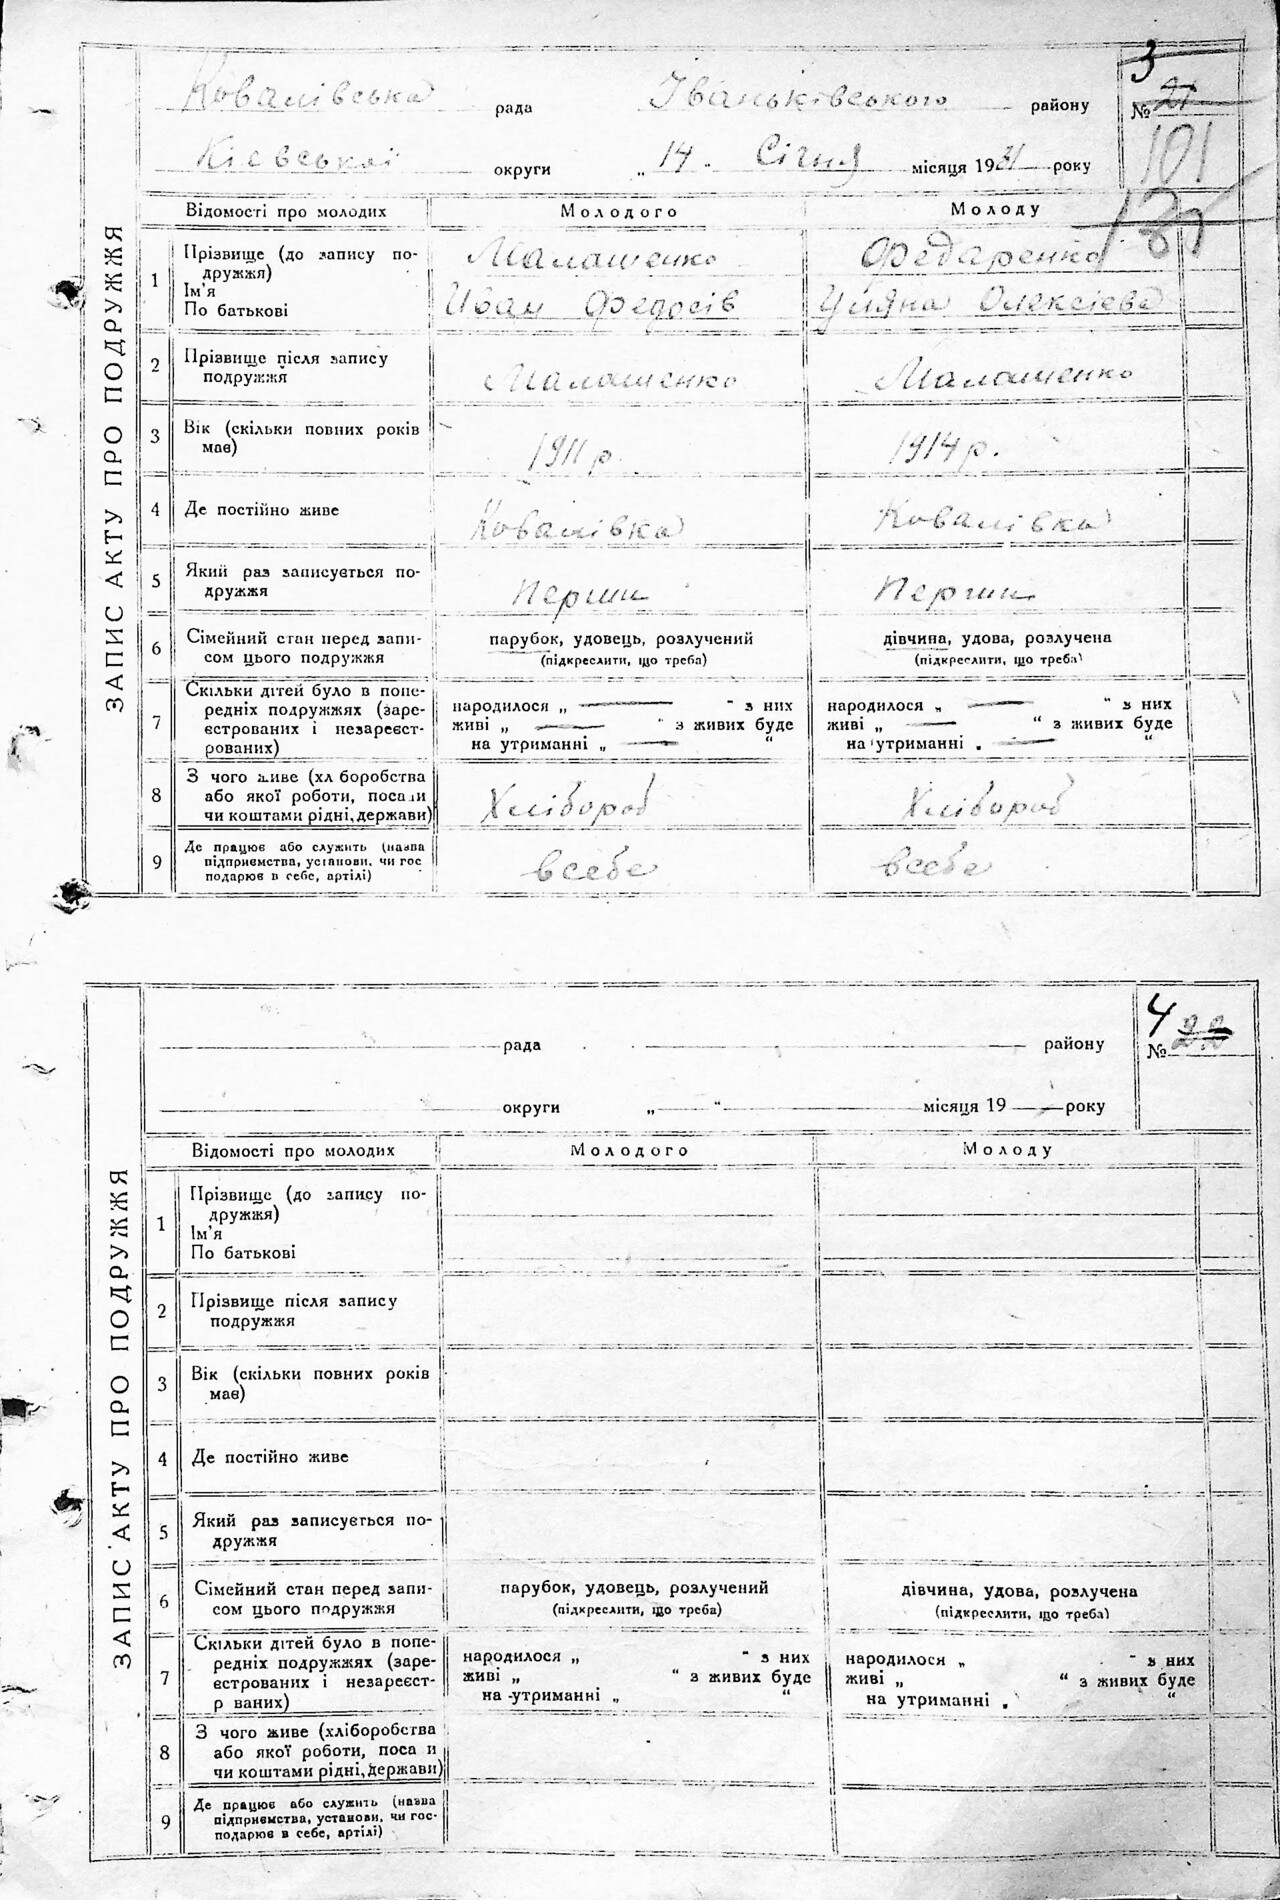 ЗАПИС АКТУ ПРО ПОДРУЖЖЯ
Ковалівська рада Іваньківського району
3
№ 21
101
Кієвської округи „ 14 - Січня місяця 1931 року
131
Відомості про молодих Молодого Молоду
1 Прізвище (до запису по-
дружжя)
Ім'я
По батькові
Малашенко
Иван Федосів
Федаренко
Уляна Олексієва
2 Прізвище після запису
подружжя
Малашенко Малашенко
3 Вік (скільки повних років
має)
1911 р. 1914 р.
4 Де постійно живе Ковалівка Ковалівка
5 Який раз записується по-
дружжя
Перши Перши
6 Сімейний стан перед запи-
сом цього подружжя
парубок, удовець, розлучений
(підкреслити, що треба)
дівчина, удова, розлучена
(підкреслити, що треба)
7 Скільки дітей було в попе-
редніх подружжях (заре-
єстрованих і незареєст-
рованих)
народилося „ — " з них
живі „ — " з живих буде
на утриманні „ — "
народилося „ — " з них
живі „ — " з живих буде
на утриманні „ — "
8 З чого живе (хл боробства
або якої роботи, посади
чи коштами рідні, держави)
Хлібороб Хлібороб
9 Де працює або служить (назва
підприємства, установи, чи гос
подарює в себе, артілі)
всебе всебе
ЗАПИС АКТУ ПРО ПОДРУЖЖЯ
рада району
4
№ 22
округи „ " місяця 19 року
Відомості про молодих Молодого Молоду
1 Прізвище (до запису по-
дружжя)
Ім'я
По батькові
2 Прізвище після запису
подружжя
3 Вік (скільки повних років
має)
4 Де постійно живе
5 Який раз записується по-
дружжя
6 Сімейний стан перед запи-
сом цього подружжя
парубок, удовець, розлучений
(підкреслити, що треба)
дівчина, удова, розлучена
(підкреслити, що треба)
7 Скільки дітей було в попе-
редніх подружжях (заре-
єстрованих і незареєст-
р ваних)
народилося „ " з них
живі „ " з живих буде
на утриманні „ "
народилося „ " з них
живі „ " з живих буде
на утриманні „ "
8 З чого живе (хліборобства
або якої роботи, поса и
чи коштами рідні, держави)
9 Де працює або служить (назва
підприємства, установи, чи гос-
подарює в себе, артілі)